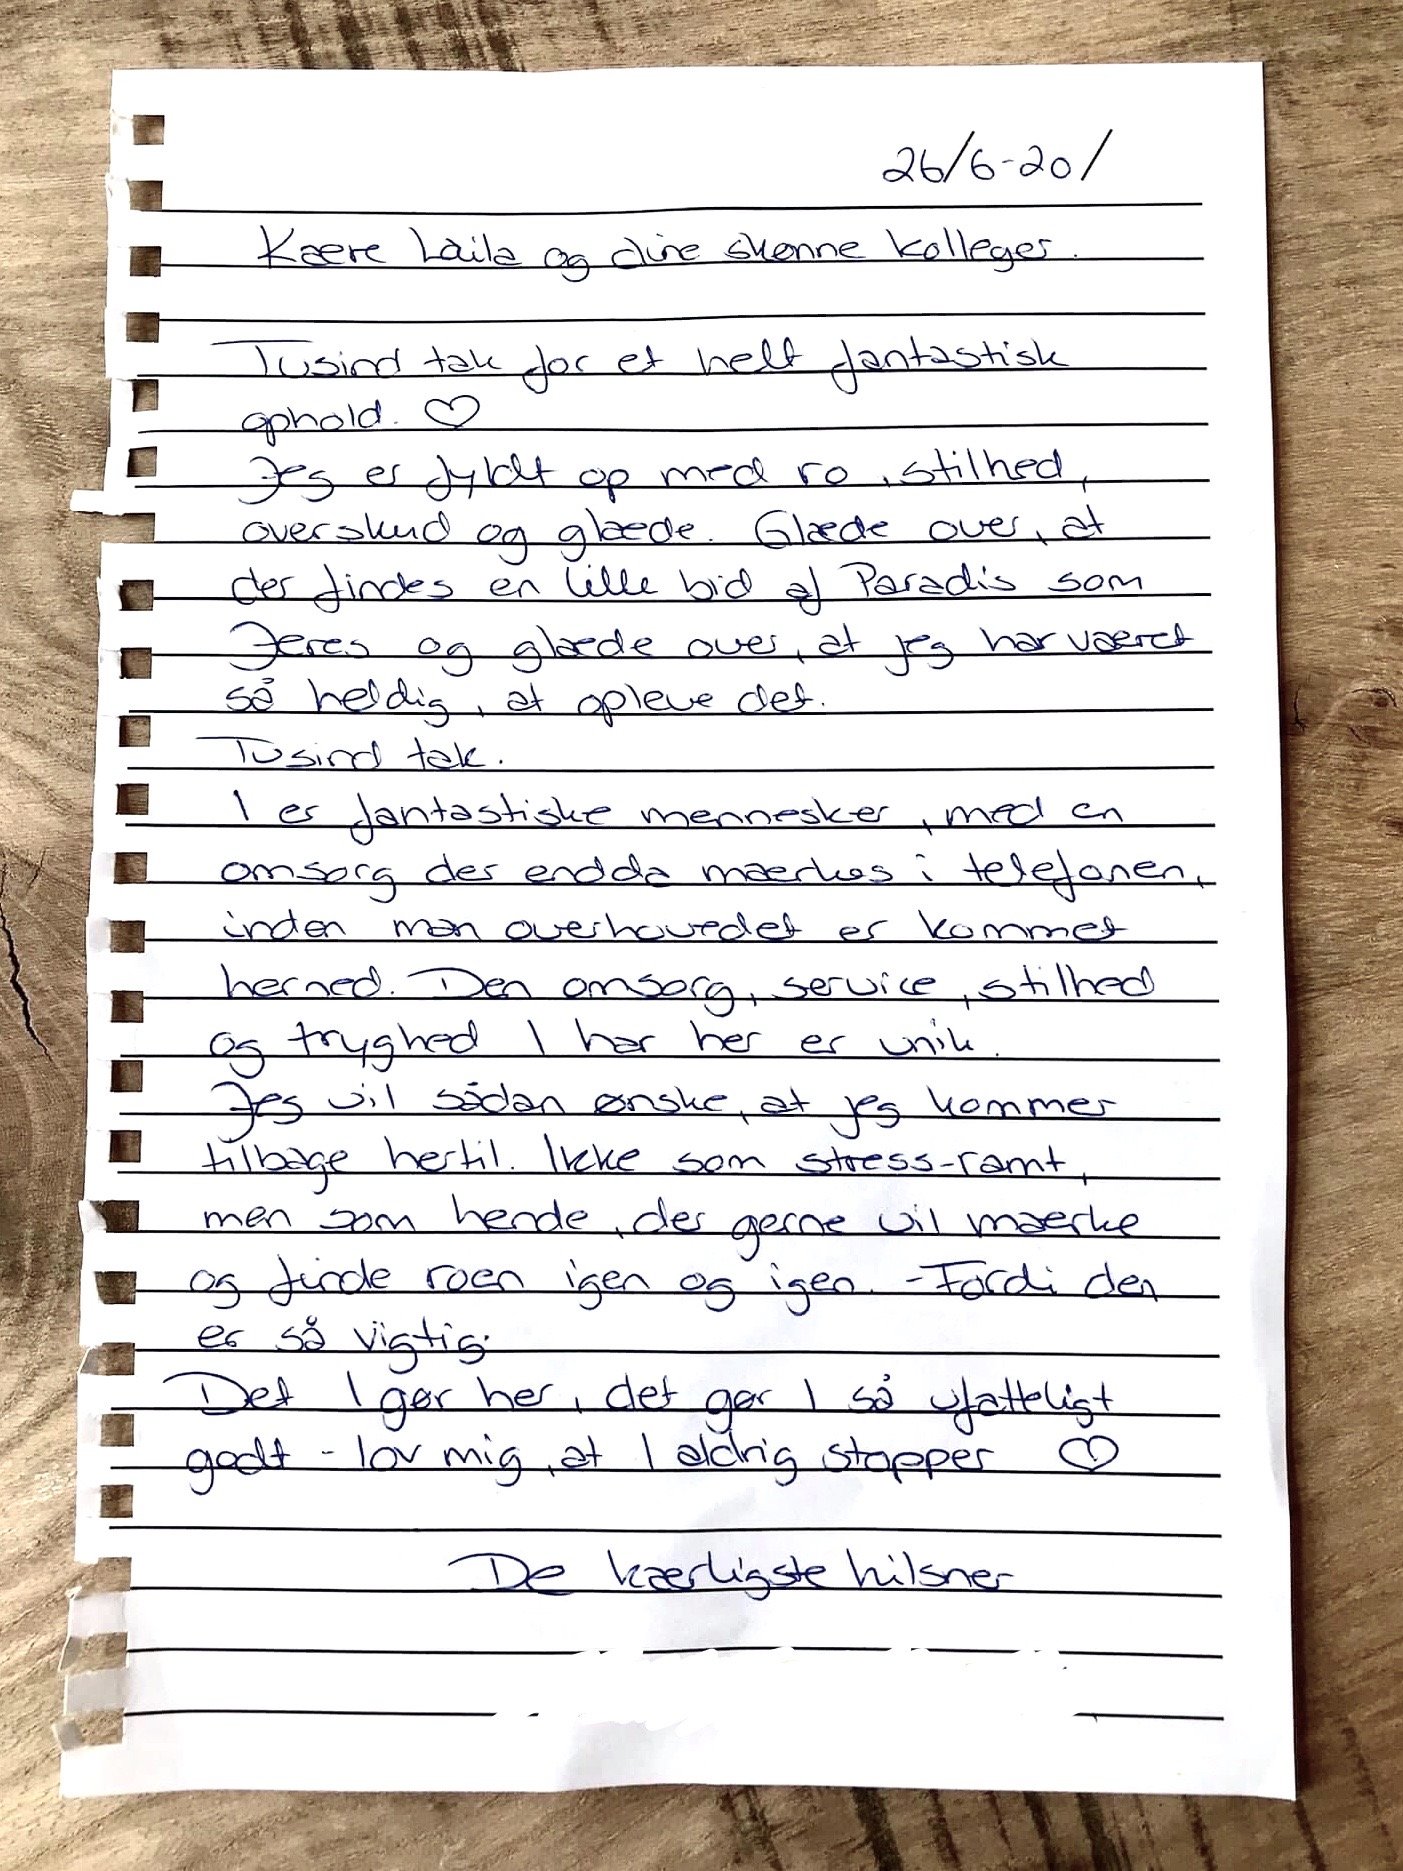 26/6-20/
Kære Laila og dine skønne kolleger.
Tusind tak for et helt fantastisk
ophold. ♡
Jeg er fyldt op med ro, stilhed,
overskud og glæde. Glæde over, at
der findes en lille bid af Paradis som
Jeres og glæde over, at jeg har været
så heldig, at opleve det.
Tusind tak.
I er fantastiske mennesker, med en
omsorg der endda mærkes i telefonen,
inden man overhovedet er kommet
herned. Den omsorg, service, stilhed
og tryghed I har her er unik.
Jeg vil sådan ønske, at jeg kommer
tilbage hertil. Ikke som stress-ramt,
men som hende, der gerne vil mærke
og finde roen igen og igen. - Fordi den
er så vigtig.
Det I gør her, det gør I så ufatteligt
godt - lov mig, at I aldrig stopper ♡
De kærligste hilsner